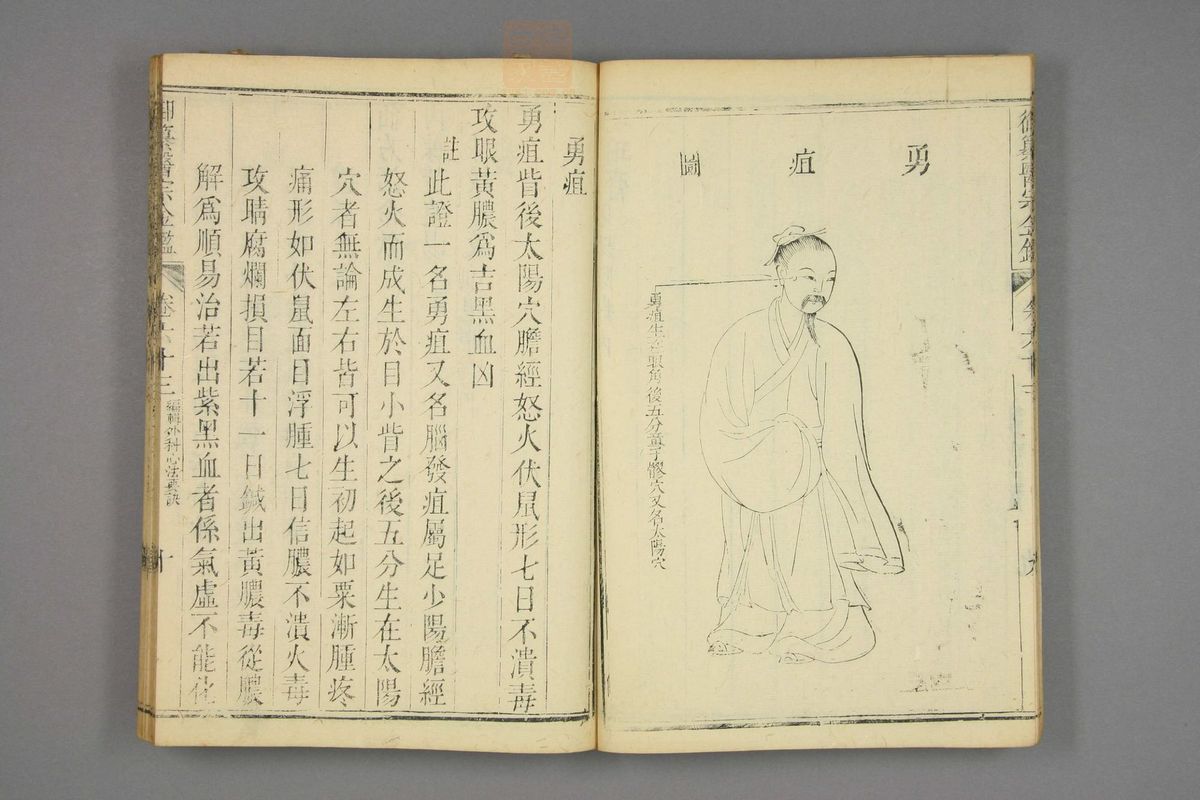 勇疽圖
勇疽生于眼角後五分童子髎穴又名太陽穴
勇疽
勇疽眥後太陽穴膽經怒火伏鼠形七日不潰毒
攻眼黃膿爲吉黑血凶
註此證一名勇疽又名腦發疽屬足少陽膽經
怒火而成生於目小眥之後五分生在太陽
穴者無論左右皆可以生初起如粟漸腫疼
痛形如伏鼠面目浮腫七日信膿不潰火毒
攻睛腐爛損目若十一日鍼出黃膿毒從膿
解爲順易治若出紫黑血者係氣虛不能化
御纂醫宗金鑑
卷六十三
編輯外科心法要訣
十